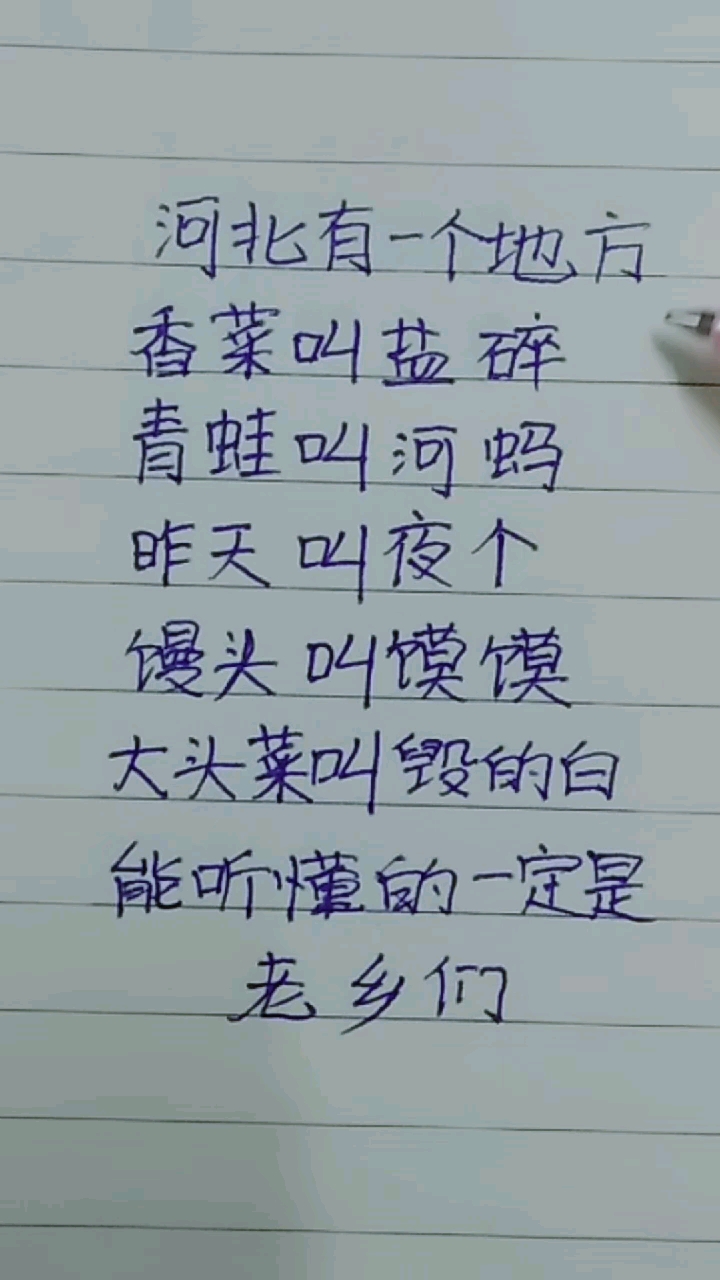 河北有一个地方
香菜叫盐碎
青蛙叫河蚂
昨天叫夜个
馒头叫馍馍
大头菜叫毁的白
能听懂的一定是
老乡们